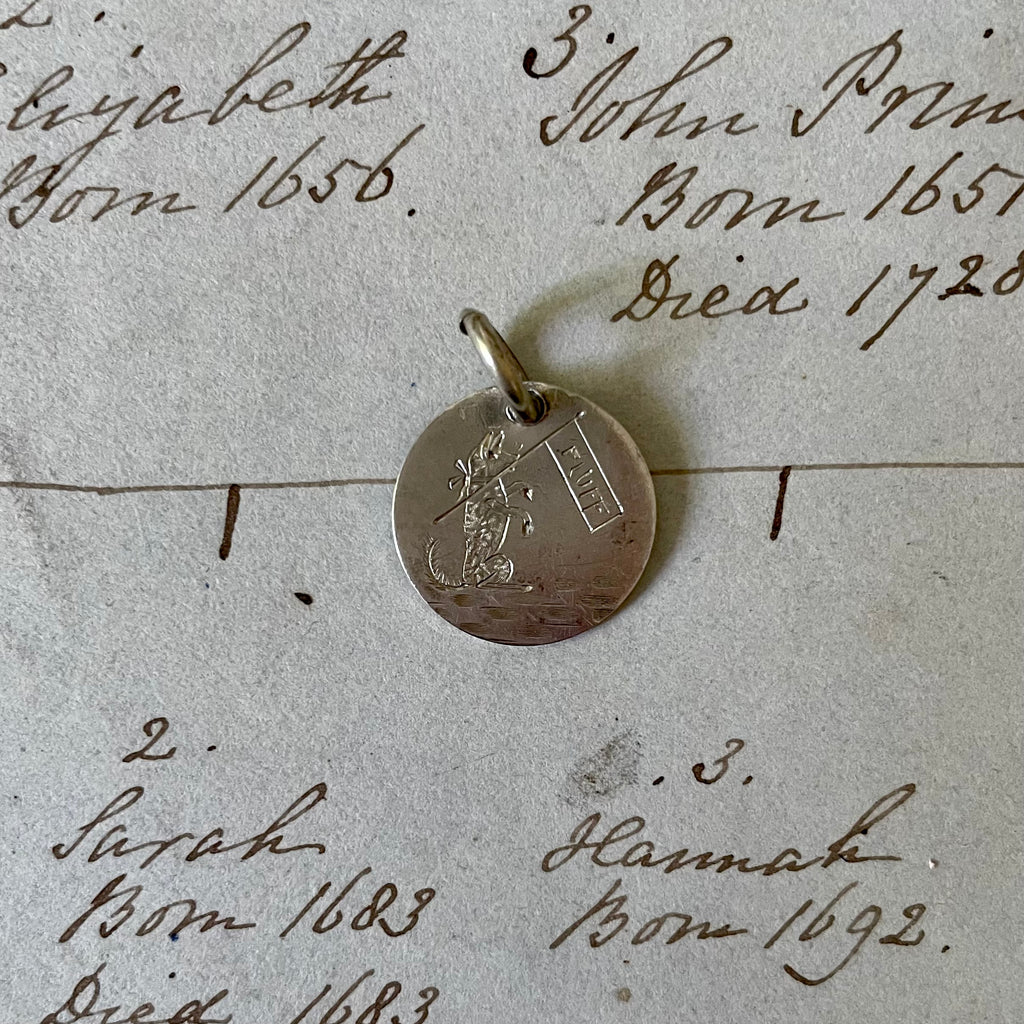 2.
Elizabeth
Born 1656.
3.
John Prin
Born 1657
Died 1728
FLUFF
2.
Sarah
Born 1683
Died 1683
. 3.
Hannah
Born 1692.